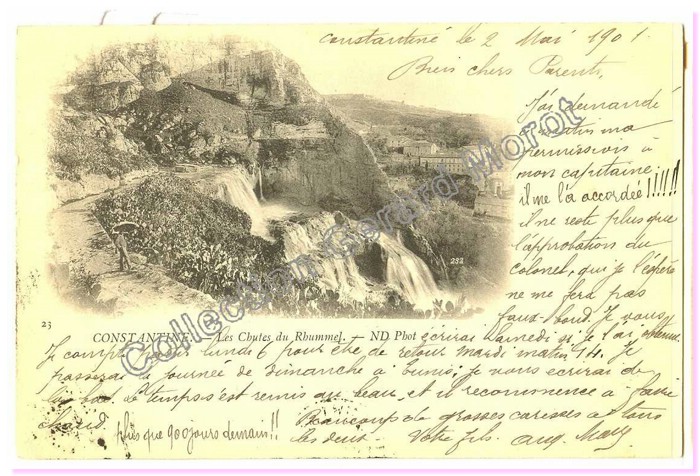 Constantine le 2 Mai 1901.
Bien chers Parents,
J'ai demandé
ce matin ma
permission à
mon capitaine.
il me l'a accordée !!!!!!
il ne reste plus que
l'approbation du
colonel, qui je l'espère
ne me fera pas
faux-bond. Je vous
23
232
CONSTANTINE. Les Chutes du Rhummel. ND Phot
écrirai samedi si je l'ai obtenue.
Je compte lundi 6 pour être de retour mardi matin 14. Je
passerai la journée de dimanche à Tunis, je vous écrirai de
là-bas. Le temps s'est remis au beau, et il recommence à faire
chaud. plus que 900 jours demain!!
Beaucoup de grosses caresses à tous
les deux. Votre fils. Aug.
Collection Gerard Morot